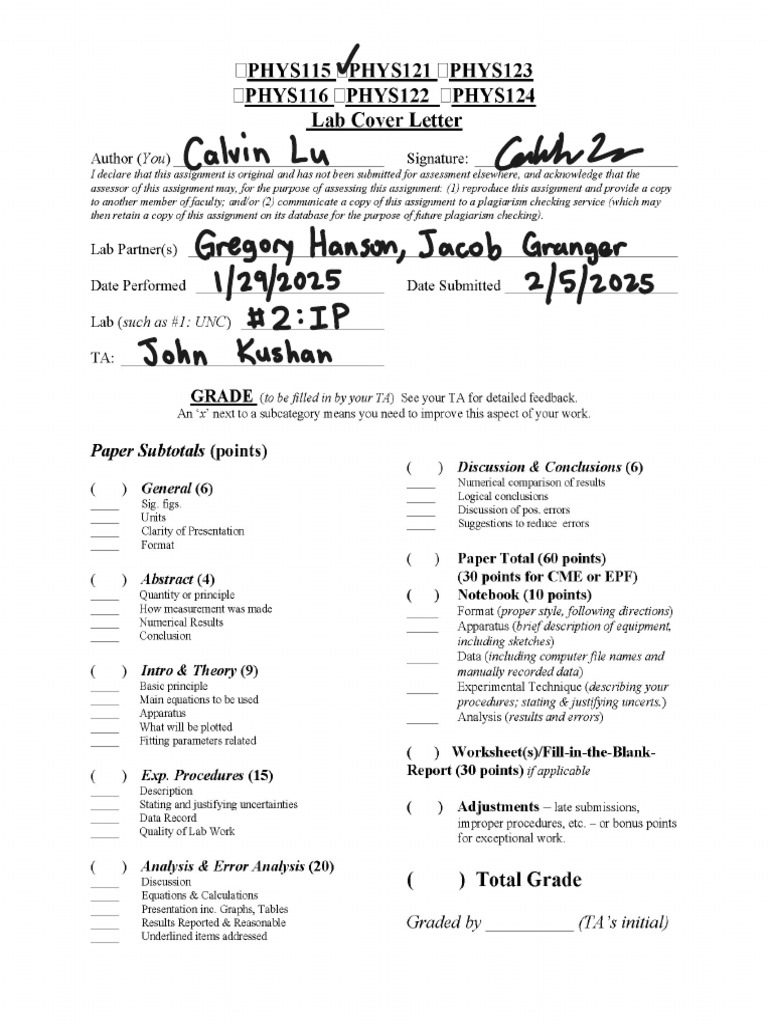 ☐PHYS115 ☑PHYS121 ☐PHYS123
☐PHYS116 ☐PHYS122 ☐PHYS124
Lab Cover Letter
Author (You) Calvin Lu Signature:
I declare that this assignment is original and has not been submitted for assessment elsewhere, and acknowledge that the
assessor of this assignment may, for the purpose of assessing this assignment: (1) reproduce this assignment and provide a copy
to another member of faculty; and/or (2) communicate a copy of this assignment to a plagiarism checking service (which may
then retain a copy of this assignment on its database for the purpose of future plagiarism checking).
Lab Partner(s) Gregory Hanson, Jacob Granger
Date Performed 1/29/2025 Date Submitted 2/5/2025
Lab (such as #1: UNC) #2:IP
TA: John Kushan
GRADE (to be filled in by your TA) See your TA for detailed feedback.
An ‘x’ next to a subcategory means you need to improve this aspect of your work.
Paper Subtotals (points)
( ) General (6)
____ Sig. figs.
____ Units
____ Clarity of Presentation
____ Format
( ) Abstract (4)
____ Quantity or principle
____ How measurement was made
____ Numerical Results
____ Conclusion
( ) Intro & Theory (9)
____ Basic principle
____ Main equations to be used
____ Apparatus
____ What will be plotted
____ Fitting parameters related
( ) Exp. Procedures (15)
____ Description
____ Stating and justifying uncertainties
____ Data Record
____ Quality of Lab Work
( ) Analysis & Error Analysis (20)
____ Discussion
____ Equations & Calculations
____ Presentation inc. Graphs, Tables
____ Results Reported & Reasonable
____ Underlined items addressed
( ) Discussion & Conclusions (6)
____ Numerical comparison of results
____ Logical conclusions
____ Discussion of pos. errors
____ Suggestions to reduce errors
( ) Paper Total (60 points)
(30 points for CME or EPF)
( ) Notebook (10 points)
____ Format (proper style, following directions)
____ Apparatus (brief description of equipment,
including sketches)
____ Data (including computer file names and
manually recorded data)
____ Experimental Technique (describing your
procedures; stating & justifying uncerts.)
____ Analysis (results and errors)
( ) Worksheet(s)/Fill-in-the-Blank-
Report (30 points) if applicable
( ) Adjustments – late submissions,
improper procedures, etc. – or bonus points
for exceptional work.
( ) Total Grade
Graded by __________ (TA’s initial)